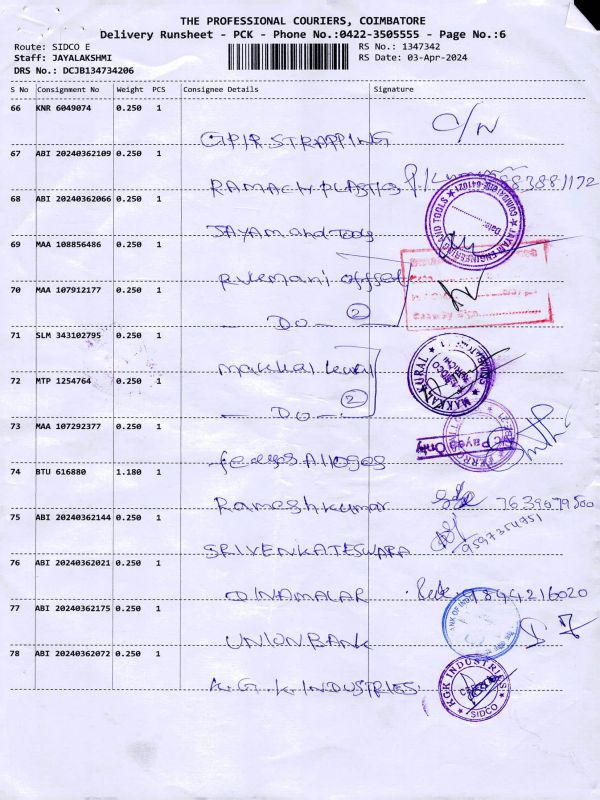 THE PROFESSIONAL COURIERS, COIMBATORE
Delivery Runsheet - PCK - Phone No.:0422-3505555 - Page No.:6
Route: SIDCO E
RS No.: 1347342
Staff: JAYALAKSHMI
RS Date: 03-Apr-2024
DRS No.: DCJB134734206
S No Consignment No Weight PCS Consignee Details Signature
66 KNR 6049074 0.250 1
STRAPPING C/N
67 ABI 20240362109 0.250 1
PLASTICS
68 ABI 20240362066 0.250 1
JAYAM and Tools
69 MAA 108856486 0.250 1
Rukmani offset
70 MAA 107912177 0.250 1
DO 2
71 SLM 343102795 0.250 1
Makkal kural
72 MTP 1254764 0.250 1
DO 2
73 MAA 107292377 0.250 1
74 BTU 616880 1.180 1
Rameshkumar
75 ABI 20240362144 0.250 1
SRI VENKATESWARA
76 ABI 20240362021 0.250 1
DINAMALAR 9844216020
77 ABI 20240362175 0.250 1
UNION BANK
78 ABI 20240362072 0.250 1
K.G.K INDUSTRIES
MAKKAL KURAL
KGK INDUSTRIES
SIDCO